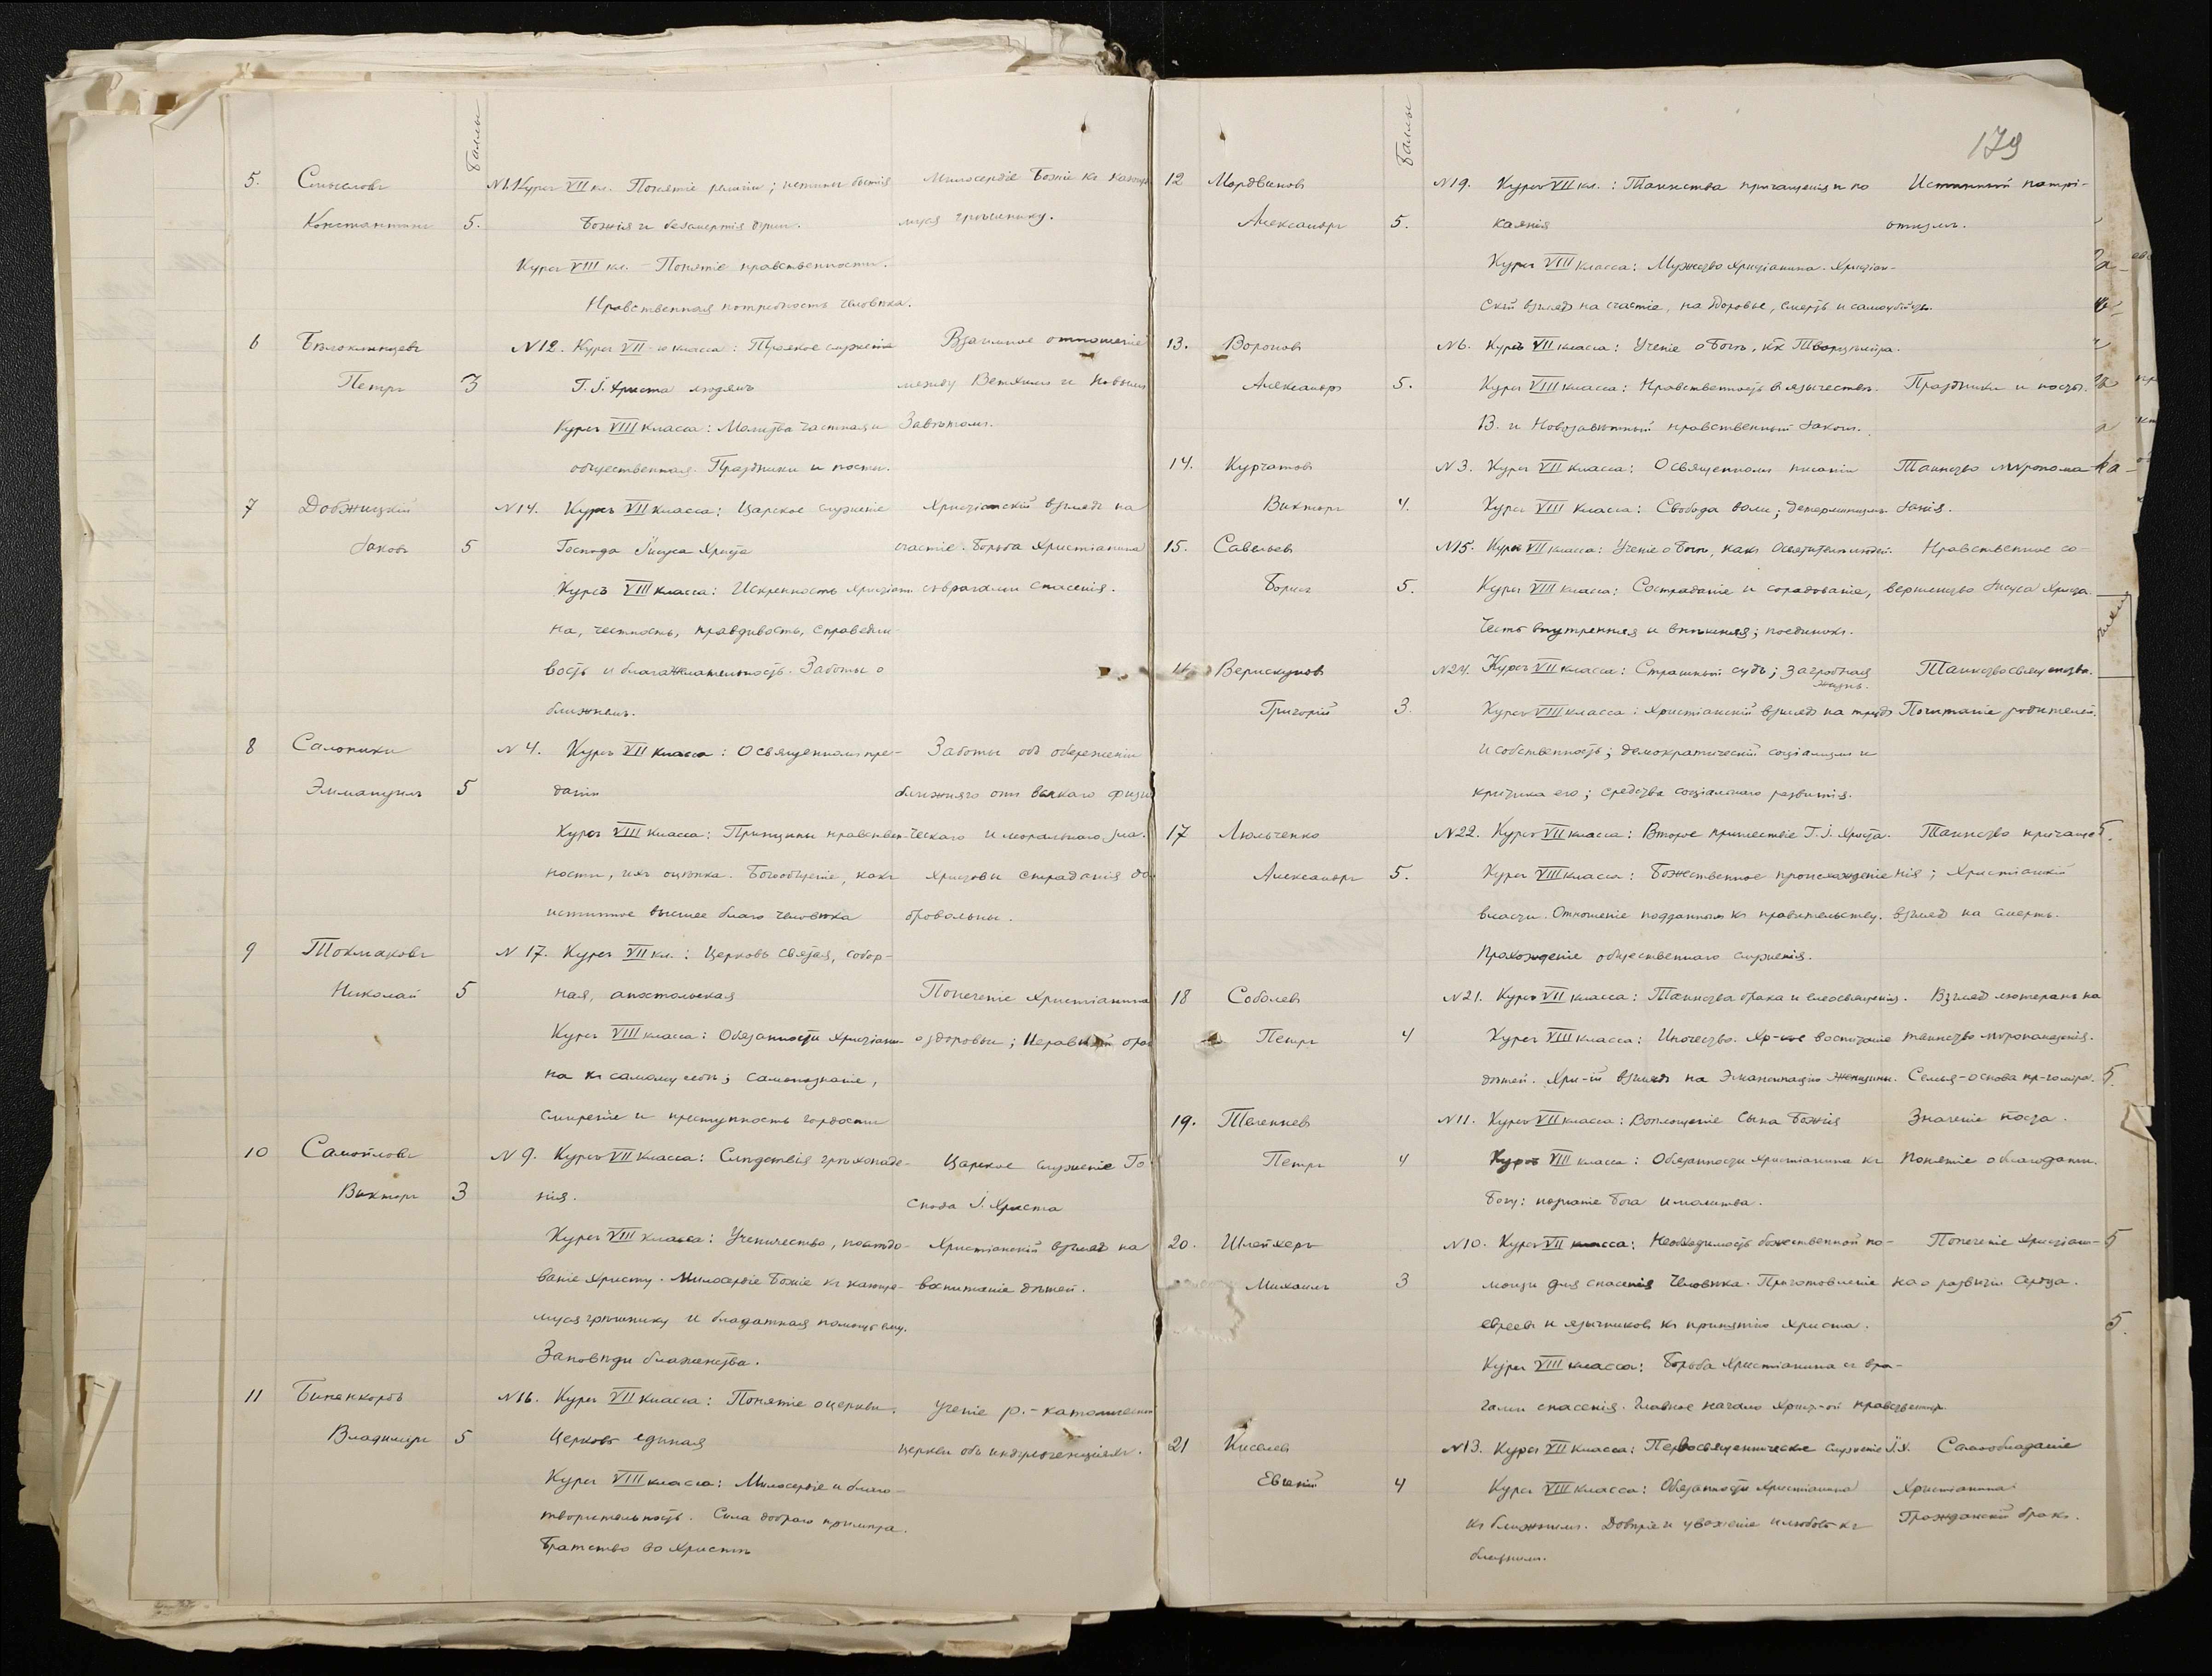 Баллы
5. Смыслов N1. Курсъ VII кл. Понятіе религіи; истины бытія Милосердіе Божіе къ кающе
Константинъ 5. Божія и безсмертія души. муся грѣшнику.
Курсъ VIII кл. – Понятіе нравственности.
Нравственная потребность человѣка.
6 Бѣлоклинцевъ N12. Курсъ VII-го класса: Пр. служеніе Взаимное отношеніе
Петръ 3 Г. І. Христа людямъ между Ветхимъ и Новымъ
Курсъ VIII класса: Молитва частная и Завѣтомъ.
общественная. Праздники и посты.
7 Добжицкій N14. Курсъ VII класса: Царское служеніе Христіанскій взглядъ на
Яковъ 5 Господа Іисуса Христа счастіе. Борьба Христіанина
Курсъ VIII класса: Искренность христіани съ врагами спасенія.
на, честность, правдивость, справедли-
вость и благожелательность. Заботы о
ближнемъ.
8 Салоники N4. Курсъ VII класса: О священномъ пре- Заботы объ обереженіи
Эммануилъ 5 даніи ближняго отъ всякаго физи
Курсъ VIII класса: Принципы нравствен- ческаго и моральнаго зла.
ности, ихъ оцѣнка. Богообщеніе, какъ Христовы страданія до-
истинное высшее благо человѣка бровольны.
9 Токмаковъ N17. Курсъ VII кл.: Церковь святая, собор-
Николай 5 ная, апостольская Попеченіе Христіанина
Курсъ VIII класса: Обязанности христіани о здоровьи;
на къ самому себѣ; самопознаніе,
смиреніе и преступность гордости
10 Самойловъ N9. Курсъ VII класса: Слѣдствія грѣхопаде- Царское служеніе Го-
Викторъ 3 нія. спода І. Христа
Курсъ VIII класса: Ученичество, послѣдо- Христіанскій взглядъ на
ваніе Христу. Милосердіе Божіе къ кающе- воспитаніе дѣтей.
муся грѣшнику и благодатная помощь ему.
Заповѣди блаженства.
11 Биненкорбъ N16. Курсъ VII класса: Понятіе о церкви. Ученіе р.-католической
Владиміръ 5 Церковь единая церкви объ индульгенціяхъ.
Курсъ VIII класса: Милосердіе и благо-
творительность. Сила добраго примѣра.
Братство во Христѣ
179
Баллы
12 Мордвиновъ N19. Курсъ VII кл.: Таинства причащенія и по Истинный патрі-
Александръ 5. каянія отизмъ.
Курсъ VIII класса: Мужество христіанина. Христіан-
скій взглядъ на счастіе, на здоровье, смерть и самоубійство.
13. Вороновъ N6. Курсъ VII класса: Ученіе о Богѣ, какъ Творцѣ міра.
Александръ 5. Курсъ VIII класса: Нравственность въ язычествѣ. Праздники и посты.
В. и Новозавѣтный нравственный законъ.
14. Курчатовъ N3. Курсъ VII класса: О священномъ писаніи Таинство мѵропома-
Викторъ 4. Курсъ VIII класса: Свобода воли; детерминизмъ занія.
15. Савельевъ N15. Курсъ VII класса: Ученіе о Богѣ, какъ Освятителѣ людей. Нравственное со-
Борисъ 5. Курсъ VIII класса: Состраданіе и сорадованіе, вершенство Іисуса Христа.
честь внутренняя и внѣшняя; поединокъ.
16 Верискуновъ N24. Курсъ VII класса: Страшный судъ; загробная жизнь. Таинство священства.
Григорій 3. Курсъ VIII класса: Христіанскій взглядъ на трудъ Почитаніе родителей.
и собственность; демократическій соціализмъ и
критика его; средства соціальнаго развитія.
17 Люльченко N22. Курсъ VII класса: Второе пришествіе Г. І. Христа. Таинство причаще
Александръ 5. Курсъ VIII класса: Божественное происхожденіе нія; Христіанскій
власти. Отношеніе подданныхъ къ правительству. взглядъ на смерть.
Прохожденіе общественнаго служенія.
18 Соболевъ N21. Курсъ VII класса: Таинства брака и елеосвященія. Взглядъ лютеранъ на
Петръ 4 Курсъ VIII класса: Иночество. Хр-кое воспитаніе таинство мѵропомазанія.
дѣтей. Хри-ій взглядъ на эмансипацію женщины. Семья – основа нр-го міра.
19. Телепневъ N11. Курсъ VII класса: Воплощеніе Сына Божія Значеніе поста.
Петръ 4 Курсъ VIII класса: Обязанности христіанина къ Понятіе о благодати.
Богу: познаніе Бога и молитва.
20. Шлейхеръ N10. Курсъ VII класса: Необходимость божественной по- Попеченіе христіани-
Михаилъ 3 мощи для спасенія человѣка. Приготовленіе на о развитіи сердца.
евреевъ и язычниковъ къ принятію Христа.
Курсъ VIII класса: Борьба Христіанина съ вра-
гами спасенія. Главное начало христ-ой нравственности
21 Киселевъ N13. Курсъ VII класса: Первосвященническое служеніе І. Х. Самообладаніе
Евгеній 4 Курсъ VIII класса: Обязанности христіанина Христіанина.
къ ближнимъ. Довѣріе и уваженіе и любовь къ Гражданскій бракъ.
ближнимъ.